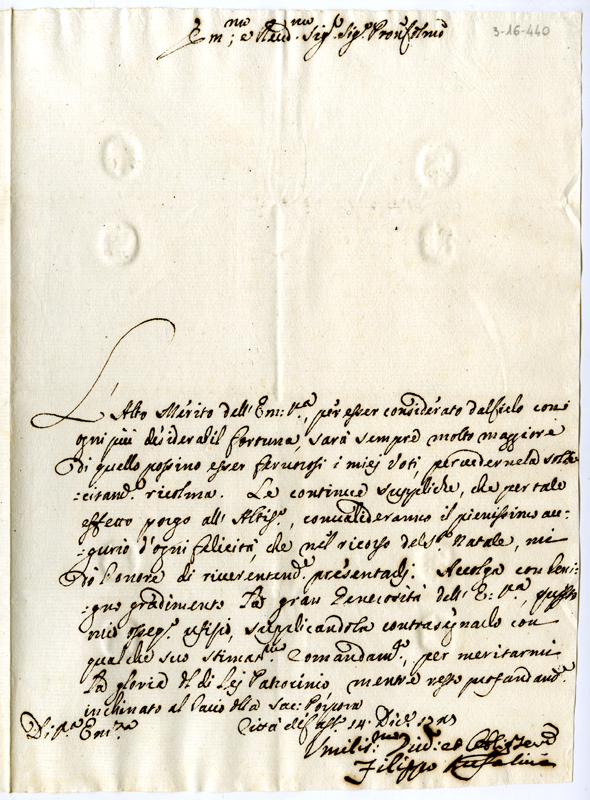 3-16-440
Em:mo; e Reud.mo Sig.r Sig.r Pron
L'Alto Merito dell'Em:V.a, per esser considerato dal Cielo con
ogni più desiderabil fortuna, sarà sempre molto maggiore
di quello possino esser feruorosi i miej Voti, per vedernela
ricolma. Le continue suppliche, che per tale
effetto porgo all'Altis.o, conualideranno il pienissimo au=
=gurio d'ogni felicità, che nel ricorso del S. Natale, mi
dò l'onore di riuerentem.e presentarlj. Accolga con beni=
=gno gradimento la gran Generosità dell'E:V.a, questo
mio osseq.o ufizio, supplicandola contrasegnarlo con
qualche suo stimat.mo Comandam.to, per meritarmi
la gloria del di Lej Patrocinio, mentre resto profondam.e
inchinato al bacio della Sac: Porpora
Di V.a Em.za Città di Cast. 14. Dic.e
Vmilis.mo Diu.mo et Obblig.
Filippo